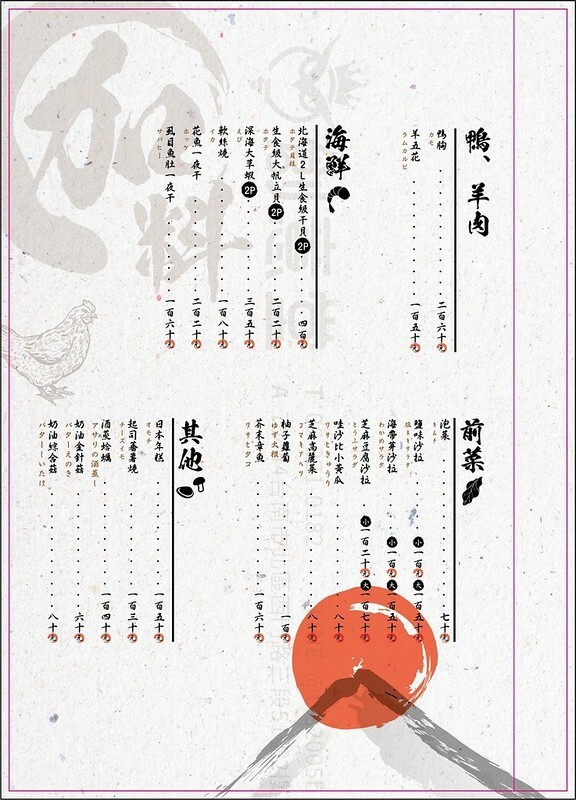 鴨、羊肉
鴨胸 二百六十元
カモ
羊五花 一百五十元
ラムカルビ
海鮮
北海道2L生食級干貝 2P 四百元
ホタテ貝柱
生食級大帆立貝 2P 二百二十元
ホタテ
深海大草蝦 2P 三百五十元
えび
軟絲燒 一百八十元
イカ
花魚一夜干 二百二十元
ホッケ
虱目魚肚一夜干 一百六十元
サバヒー
加料
前菜
泡菜 七十元
キムチ
鹽味沙拉 小 一百元 大 一百五十元
塩ネギサラダ
海帶芽沙拉 小 一百元 大 一百五十元
わかめサラダ
芝麻豆腐沙拉 小 一百二十元 大 一百七十元
とうふサラダ
哇沙比小黃瓜 八十元
ワサビきゅうり
芝麻高麗菜 八十元
ゴマキャベツ
柚子蘿蔔 一百元
ゆず大根
芥末章魚 一百六十元
ワサビタコ
其他
日本年糕 一百五十元
オモチ
起司蕃薯燒 一百三十元
チーズイモ
酒蒸蛤蠣 一百四十元
アサリの酒蒸し
奶油金針菇 六十元
バターえのき
奶油綜合菇 八十元
バターしいたけ